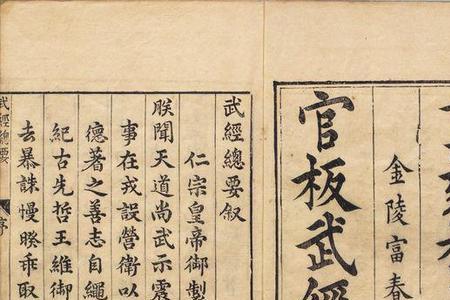 金陵富春
官板武經
武經總要叙
仁宗皇帝御製
朕聞天道尚武示震
事在戎設營衛以
德者之善志自繩
紀古先哲王維御
去暴誅慢睽乖取
武經總要 序